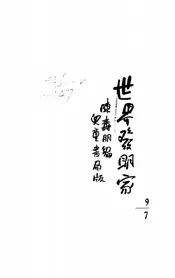 世界發明家
陳壽朋編
兒童書局版
9/7